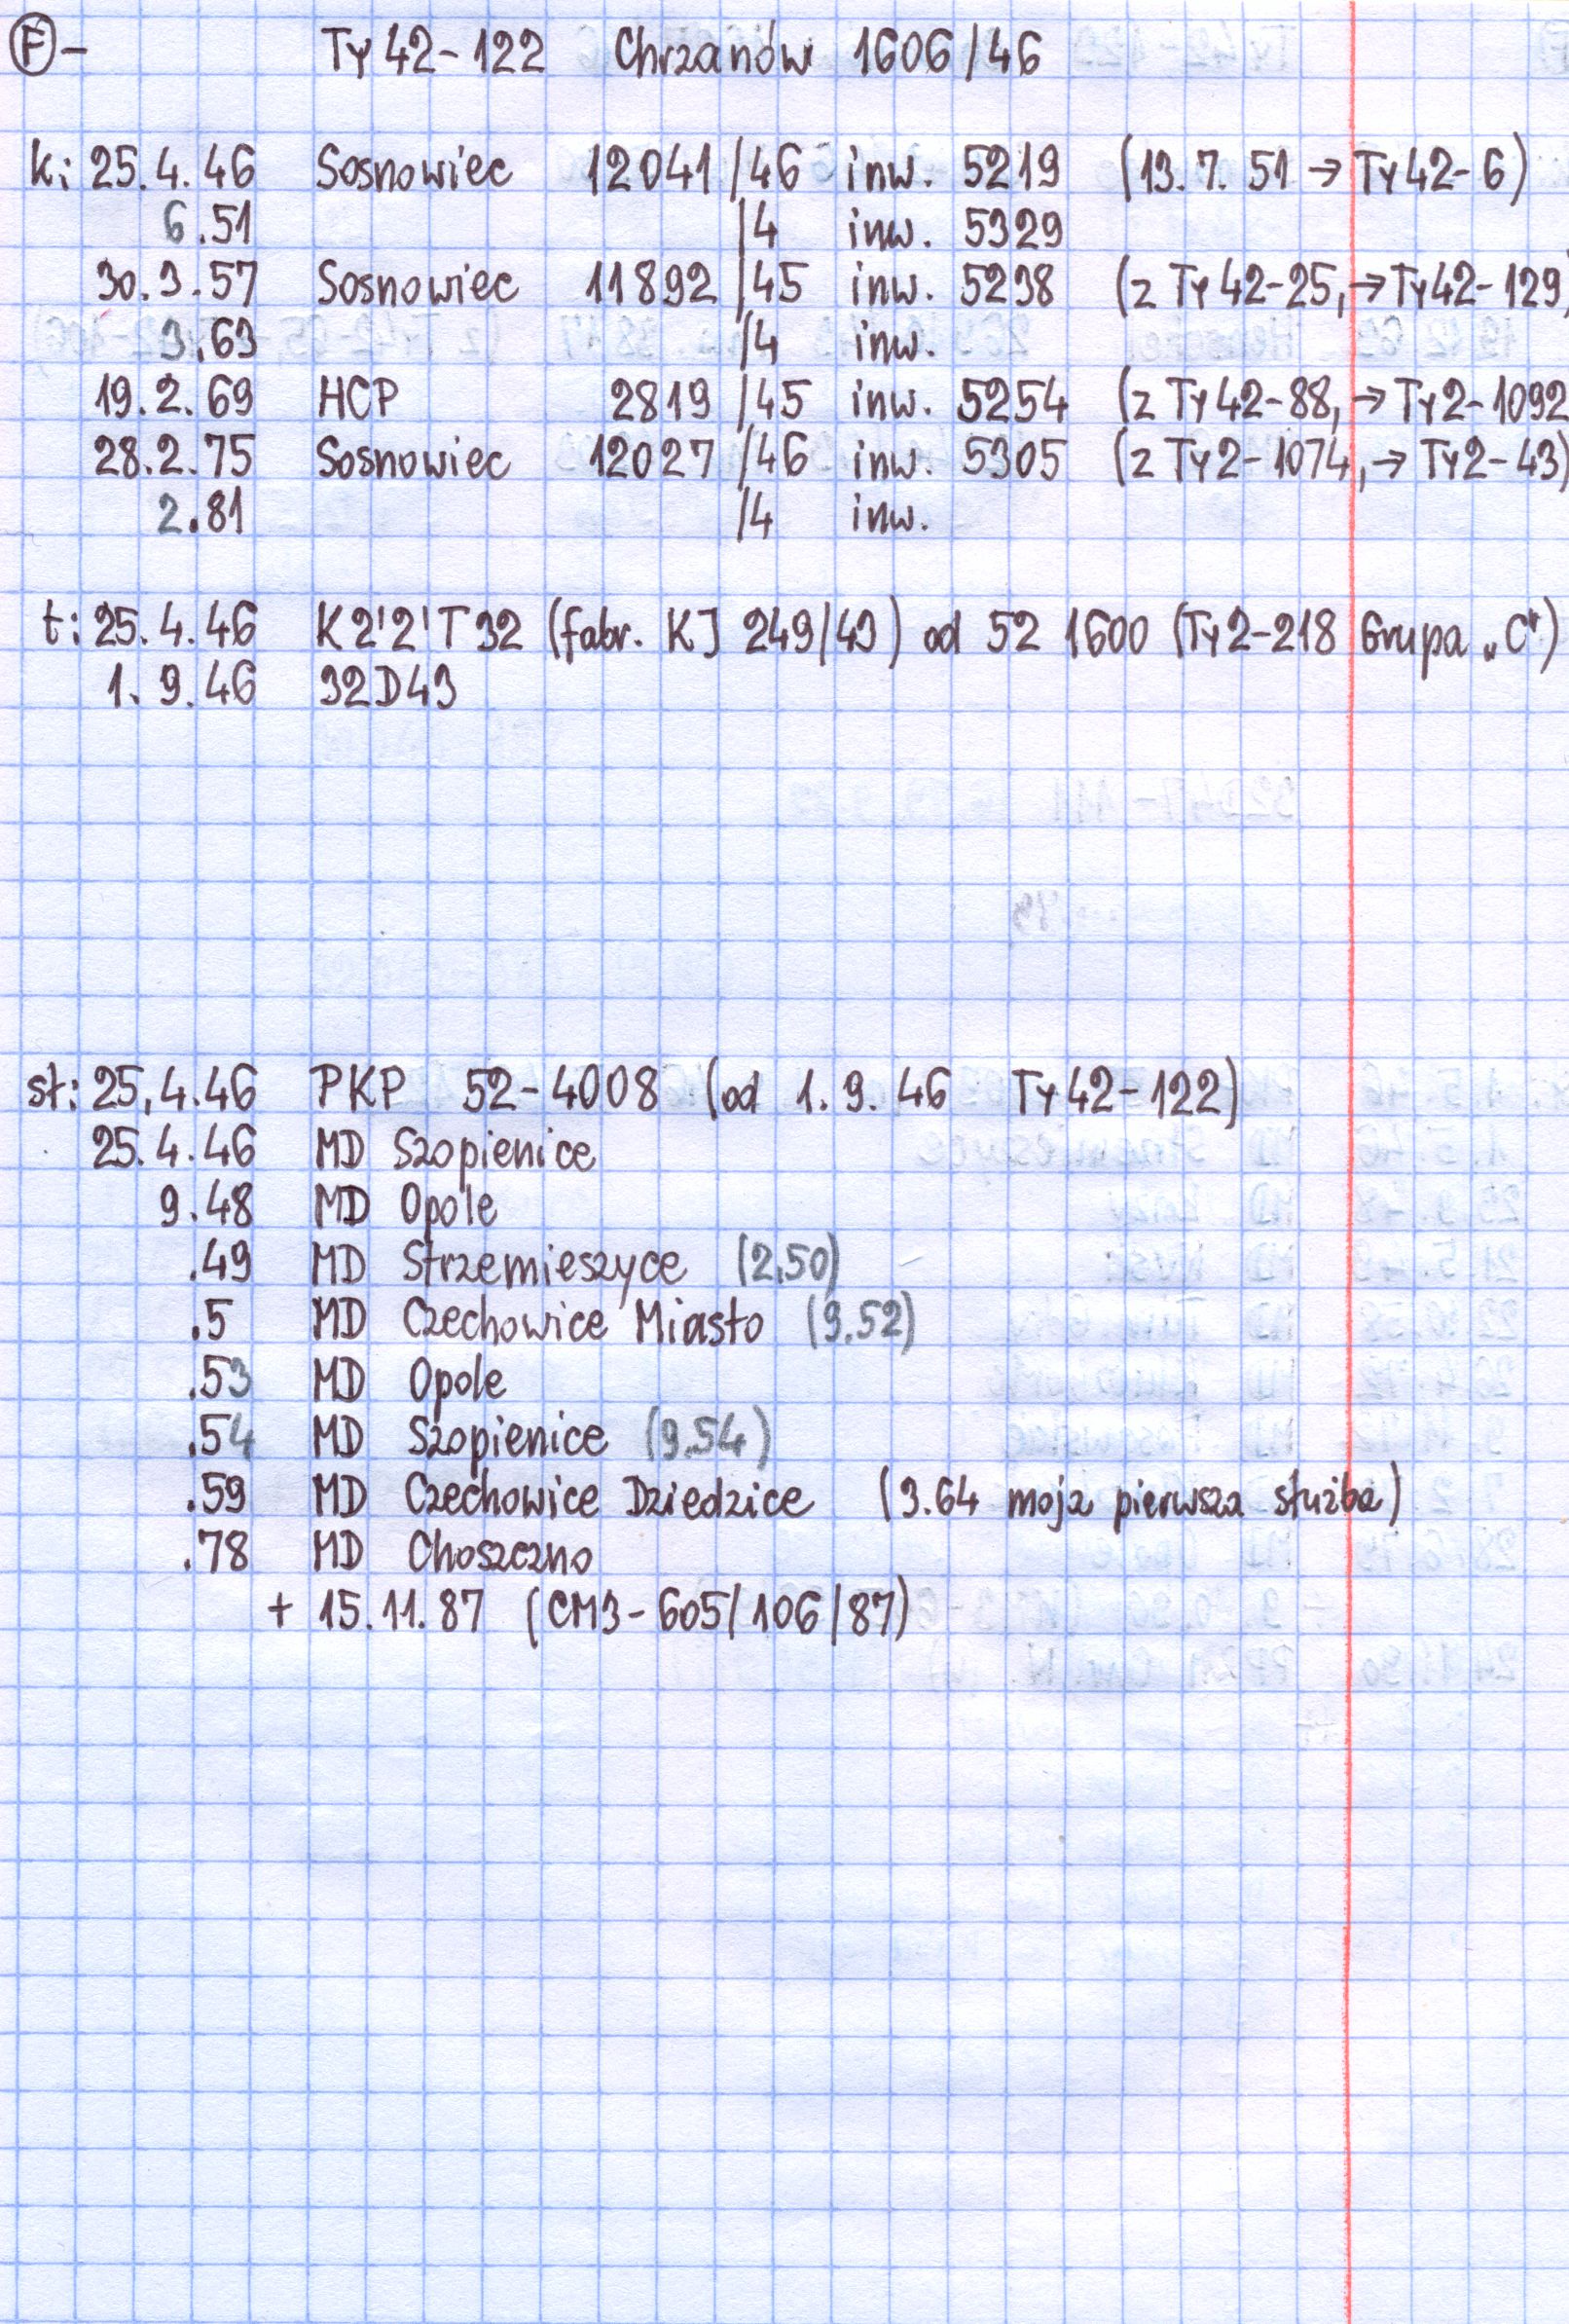 Ⓕ- Ty42-122 Chrzanów 1606/46
k: 25.4.46 Sosnowiec 12041/46 inw. 5219 (13.7.51 → Ty42-6)
6.51 /4 inw. 5329
30.3.57 Sosnowiec 11892/45 inw. 5238 (z Ty42-25, → Ty42-129)
3.63 /4 inw.
19.2.69 HCP 2819/45 inw. 5254 (z Ty42-88, → Ty2-1092
28.2.75 Sosnowiec 12027/46 inw. 5305 (z Ty2-1074, → Ty2-43)
2.81 /4 inw.
t: 25.4.46 K2'2'T32 (fabr. KJ 249/43) od 52 1600 (Ty2-218 Grupa „C")
1.9.46 32D43
st: 25.4.46 PKP 52-4008 (od 1.9.46 Ty42-122)
25.4.46 MD Szopienice
9.48 MD Opole
.49 MD Strzemieszyce (2.50)
.5 MD Czechowice Miasto (9.52)
.53 MD Opole
.54 MD Szopienice (9.54)
.59 MD Czechowice Dziedzice (3.64 moja pierwsza służba)
.78 MD Choszczno
+ 15.11.87 (CM3-605/106/87)